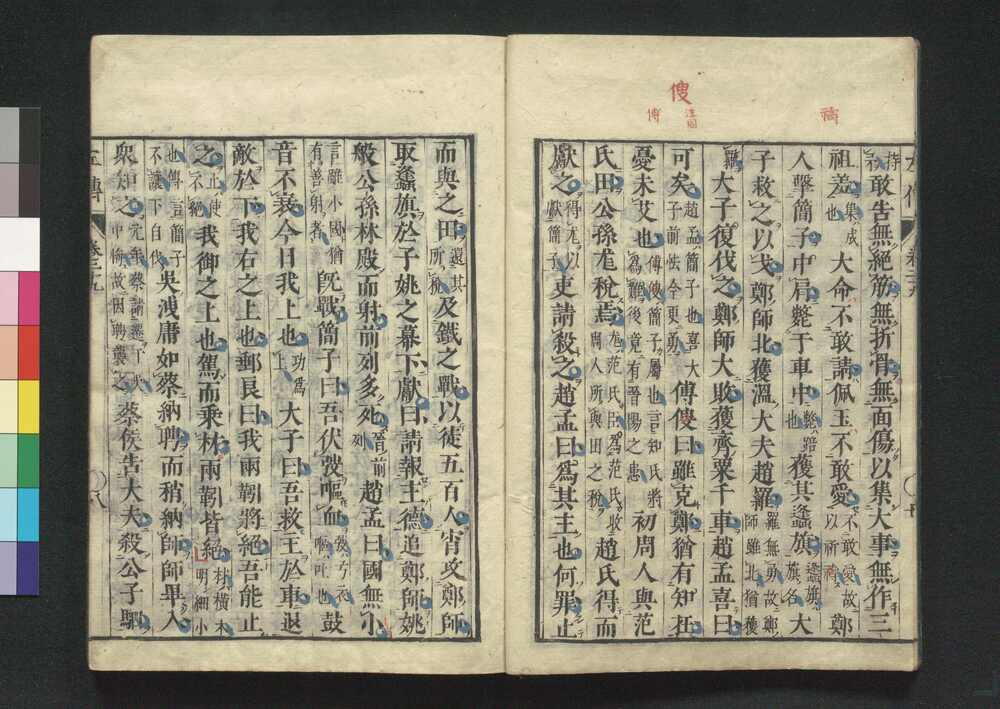 禱
傁
注同
傅
持矛敢告無絕筋無折骨無面傷以集大事無作三
祖羞集成也大命不敢請佩玉不敢愛不敢愛故以祈禱鄭
人擊簡子中肩斃于車中斃踣也獲其蠭旗蠭旗旗名大
子救之以戈鄭師北獲溫大夫趙羅羅無勇故鄭師雖北猶獲
羅大子復伐之鄭師大敗獲齊粟千車趙孟喜曰
可矣趙孟簡子也喜大子前怯今更勇傅傁曰雖克鄭猶有知在
憂未艾也傅傁簡子屬也言知氏將為難後竟有晉陽之患初周人與范
氏田公孫尨稅焉尨范氏臣為范氏收周人所與田之稅趙氏得而
獻之得尨以獻簡子吏請殺之趙孟曰為其主也何罪止
而與之田還其所稅及鐵之戰以徒五百人宵攻鄭師
取蠭旗於子姚之幕下獻曰請報主德追鄭師姚
般公孫林殿而射前列多死晉前列趙孟曰國無小
言雖小國猶有善射者既戰簡子曰吾伏弢嘔血弢弓衣嘔吐也鼓
音不衰今日我上也功為上大子曰吾救主於車退
敵於下我右之上也郵良曰我兩靷將絕吾能止
之止使不絕我御之上也駕而乘材兩靷皆絕材橫木明細小
也傳言簡子不讓下自伐吳洩庸如蔡納聘而稍納師師畢入
眾知之元年蔡請遷于吳中悔故因聘襲之蔡侯告大夫殺公子駟
左傳